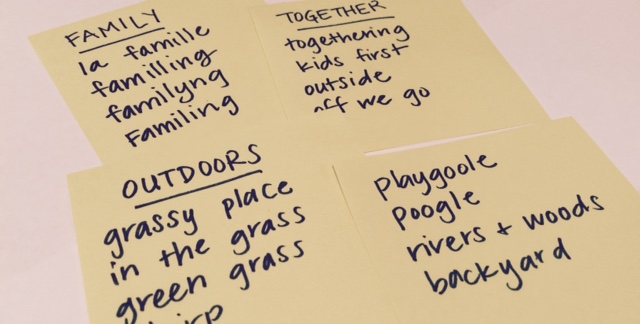 FAMILY
la famille
familling
familyng
Familing
TOGETHER
togethering
kids first
outside
off we go
OUTDOORS
grassy place
in the grass
green grass
playgoole
poogle
rivers + woods
backyard